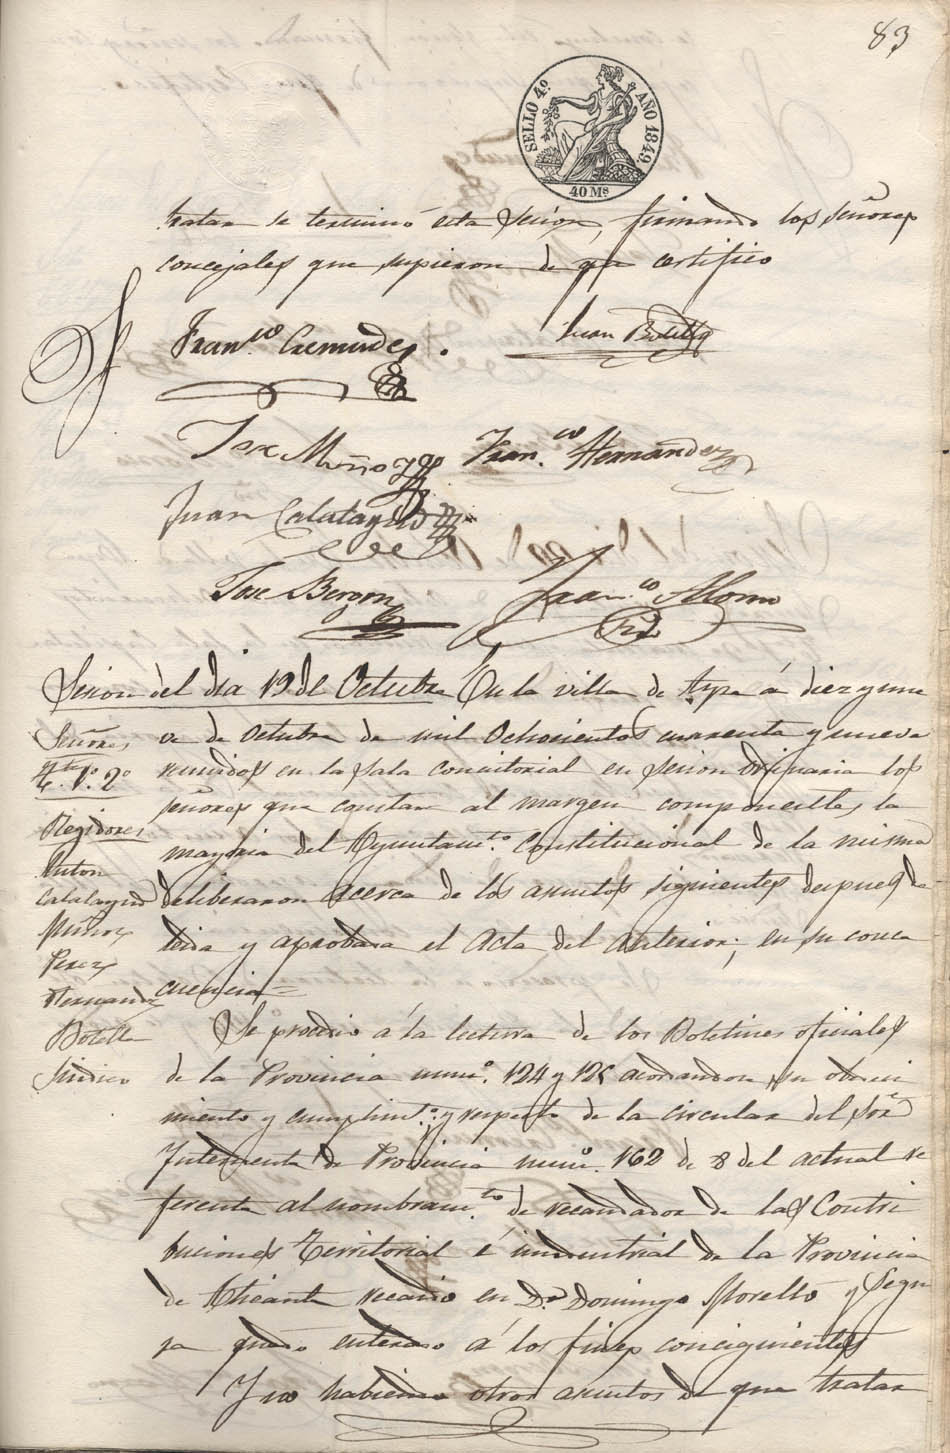 83
SELLO 4º AÑO 1849.
40 Ms
tratar se terminó esta Sesión, firmando los Señores
concejales que supieron de que certifico
Franco Juan Botella
Jose Muñoz Franco Hernandez
Juan Calatayud
Jose Franco Alonso
Srio
Sesion del dia 19 de Octubre En la villa de Aspe á diez y nue
Señores
Tte 1º 2º
Regidores
Anton
Calatayud
Muñoz
Perez
Hernandz
Botella
Sindico
ve de Octubre de mil Ochosientos cuarenta y nueve
reunidos en la Sala Concitorial en Sesion Ordinaria los
Señores que constan al margen componentes la
mayoria del Ayuntamto Constitucional de la misma
deliberaron acerca de los asuntos siguientes despues de
leida y aprobada el Acta del Anterior; en su conce
cuencia =
Se procedio á la lectura de los Boletines oficiales
de la Provincia numº. 124 y 125 acordandose su obedeci
miento y cumplimto; y respecto de la circular del Sor
Intendente de Provincia numº. 162 de 8 del actual re
ferente al nombramto de recaudador de las Contri
buciones Territorial é industrial de la Provincia
de Alicante recaido en Dn Domingo Morelló y Segu
ra quedó enterado á los fines conciguientes
Y no habiendo otros asuntos de que tratar